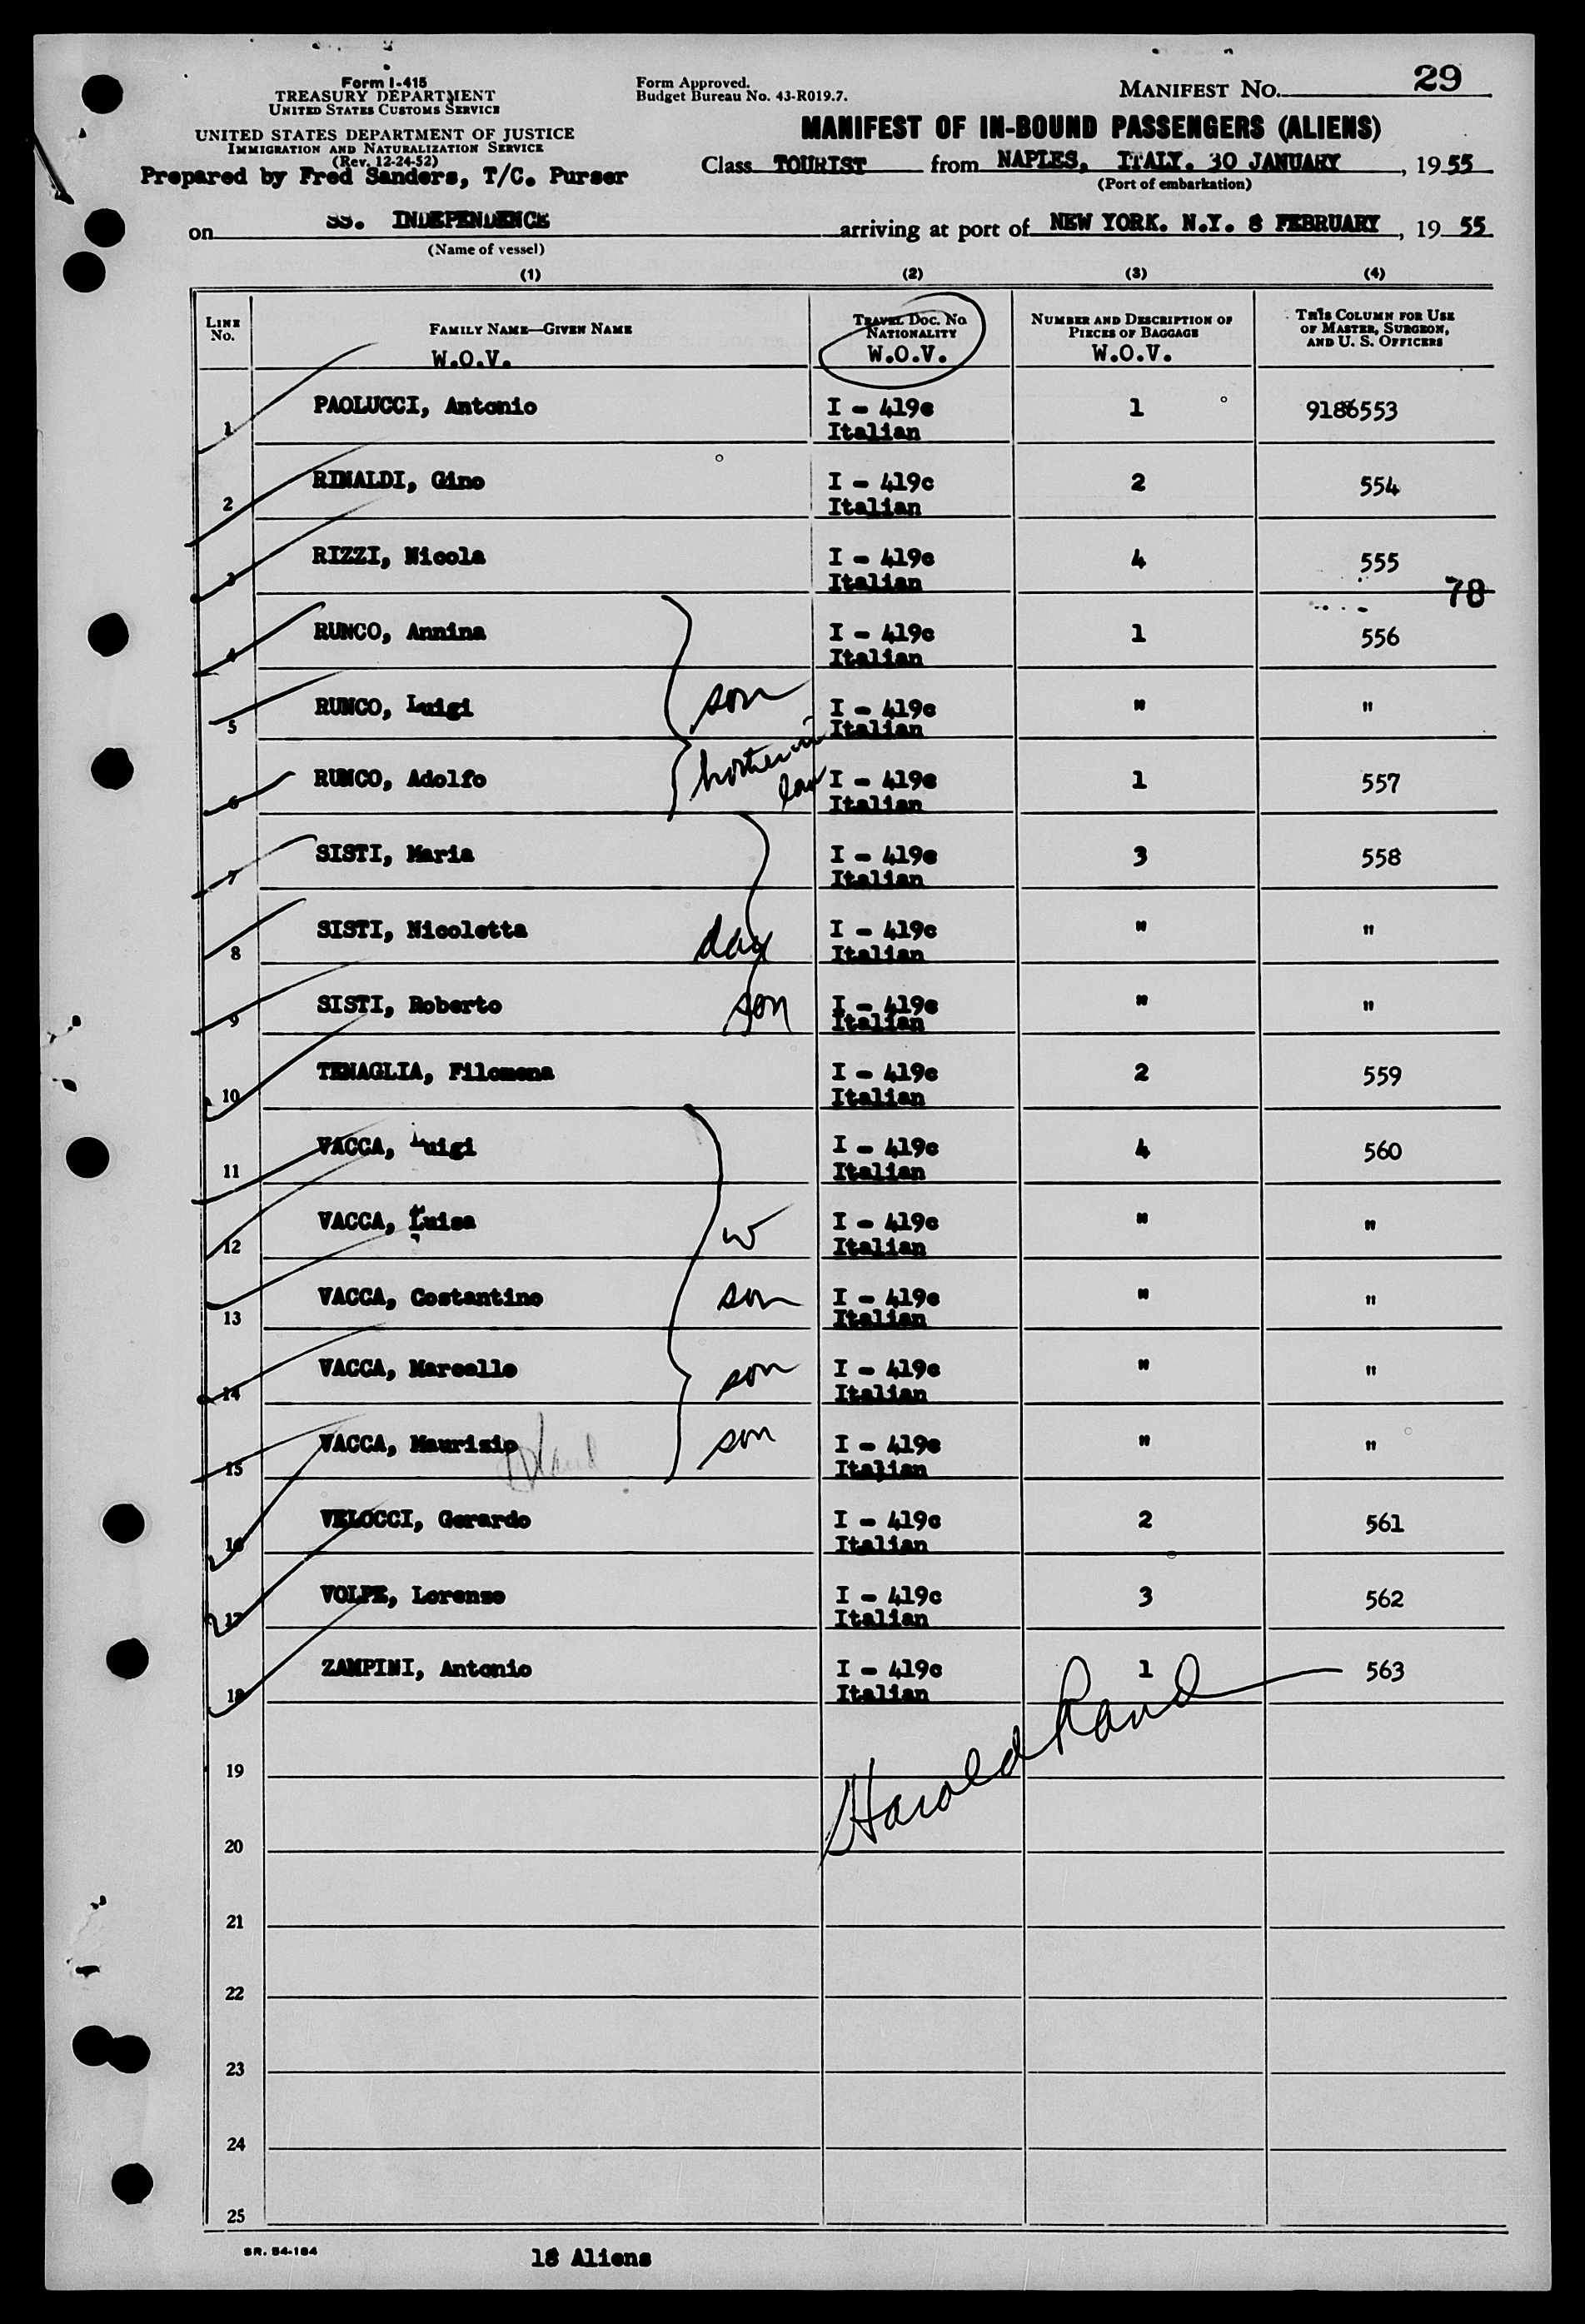 Form I-415
TREASURY DEPARTMENT
UNITED STATES CUSTOMS SERVICE
UNITED STATES DEPARTMENT OF JUSTICE
IMMIGRATION AND NATURALIZATION SERVICE
(Rev. 12-24-52)
Prepared by Fred Sanders, T/C. Purser
Form Approved.
Budget Bureau No. 43-R019.7.
MANIFEST NO. 29
MANIFEST OF IN-BOUND PASSENGERS (ALIENS)
Class TOURIST from NAPLES, ITALY. 30 JANUARY, 1955
(Port of embarkation)
on SS. INDEPENDENCE arriving at port of NEW YORK. N.Y. 8 FEBRUARY, 19 55
(Name of vessel)
(1) (2) (3) (4)
LINE No. FAMILY NAME—GIVEN NAME W.O.V. TRAVEL DOC. NO. NATIONALITY W.O.V. NUMBER AND DESCRIPTION OF PIECES OF BAGGAGE W.O.V. THIS COLUMN FOR USE OF MASTER, SURGEON, AND U. S. OFFICERS
1 PAOLUCCI, Antonio I - 419c Italian 1 9186553
2 RINALDI, Gino I - 419c Italian 2 554
3 RIZZI, Nicola I - 419c Italian 4 555
78
4 RUNCO, Annina I - 419c Italian 1 556
5 RUNCO, Luigi son I - 419c Italian " "
6 RUNCO, Adolfo brother in law I - 419c Italian 1 557
7 SISTI, Maria I - 419c Italian 3 558
8 SISTI, Nicoletta dau I - 419c Italian " "
9 SISTI, Roberto son I - 419c Italian " "
10 TENAGLIA, Filomena I - 419c Italian 2 559
11 VACCA, Luigi I - 419c Italian 4 560
12 VACCA, Luisa w I - 419c Italian " "
13 VACCA, Costantino son I - 419c Italian " "
14 VACCA, Marcello son I - 419c Italian " "
15 VACCA, Maurizio son I - 419c Italian " "
16 VELOCCI, Gerardo I - 419c Italian 2 561
17 VOLPE, Lorenzo I - 419c Italian 3 562
18 ZAMPINI, Antonio I - 419c Italian 1 563
Harold Rand
19
20
21
22
23
24
25
SR. 54-184
18 Aliens